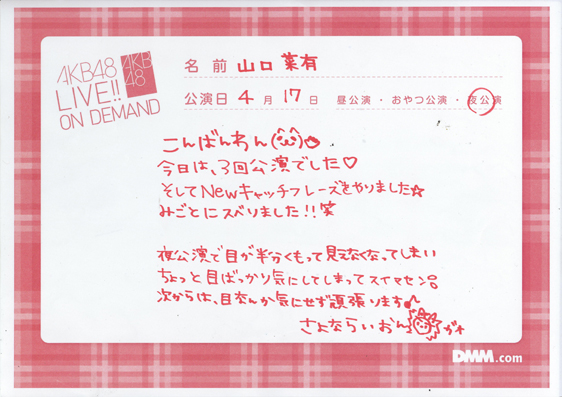 AKB48
LIVE!!
ON DEMAND
AKB
48
名前 山口 菜有
公演日 4月 17日 昼公演・おやつ公演・夜公演
こんばんわん(^ω^)
今日は、3回公演でした♡
そしてNewキャッチフレーズをやりました☆
みごとにスベりました!!笑
夜公演で目が半分くもって見えなくなってしまい
ちょっと目ばっかり気にしてしまってスイマセン。
次からは、目なんか気にせず頑張ります♪
さよならいおん ガオ
DMM.com